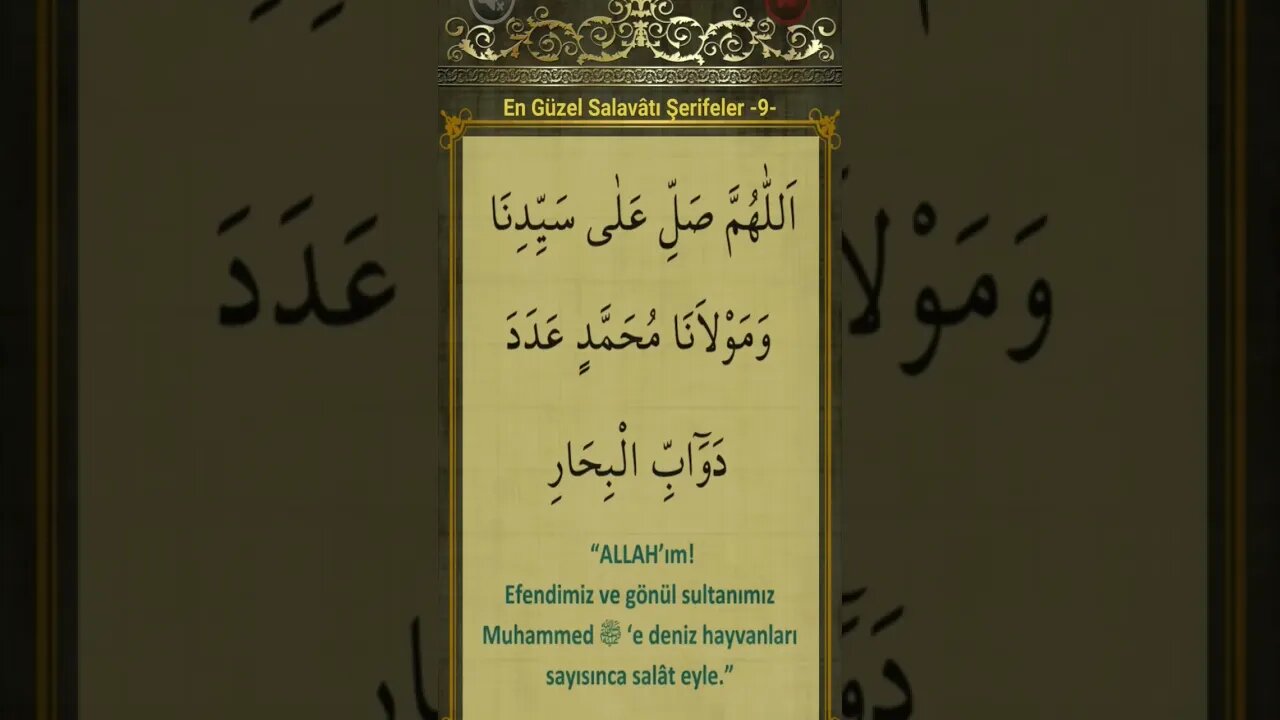 En Güzel Salavâtı Şerifeler -9-
اَللّٰهُمَّ صَلِّ عَلٰى سَيِّدِنَا
وَمَوْلاَنَا مُحَمَّدٍ عَدَدَ
دَوَٓابِّ الْبِحَارِ
“ALLAH’ım!
Efendimiz ve gönül sultanımız
Muhammed ﷺ ‘e deniz hayvanları
sayısınca salât eyle.”